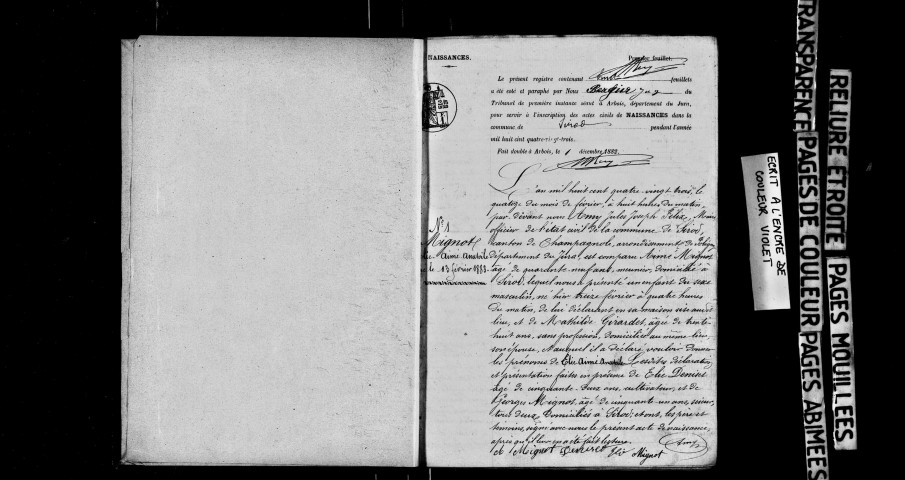 NAISSANCES.
Premier feuillet.
Le présent registre contenant feuillets
a été coté et paraphé par Nous juge du
Tribunal de première instance séant à Arbois, département du Jura,
pour servir à l'inscription des actes civils de NAISSANCES dans la
commune de Sirod pendant l'année
mil huit cent quatre-vingt-trois.
Fait double à Arbois, le 1 décembre 1882.
N° 1
Mignot
Elie Aimé Anatole
né le 13 février 1883.
L'an mil huit cent quatre vingt trois, le
quatorze du mois de février, à huit heures du matin,
par devant nous Amy Jules Joseph Félix, Maire
officier de l'état civil de la commune de Sirod,
canton de Champagnole, arrondissement de Poligny,
département du Jura, est comparu Aimé Mignot
âgé de quarante-neuf ans, meunier, domicilié à
Sirod, lequel nous a présenté un enfant du sexe
masculin, né hier treize février à quatre heures
du matin, de lui déclarant en sa maison sise audit
lieu, et de Mathilde Girardet, âgée de trente
huit ans, sans profession, domiciliée au même lieu
son épouse, et auquel il a déclaré vouloir donner
les prénoms de Elie Aimé Anatole Lesdites déclaration
et présentation faites en présence de Elie Deniset
âgé de cinquante-deux ans, cultivateur, et de
Georges Mignot, âgé de cinquante un ans,
tous deux domiciliés à Sirod; et ont, les père et
témoins, signé avec nous le présent acte de naissance,
après qu'il leur en a été fait lecture.
Amy
Mignot Deniset Elie Mignot
ECRIT À L'ENCRE DE
COULEUR VIOLET
TRANSPARENCE PAGES DE COULEUR PAGES ABIMÉES
RELIURE ÉTROITE PAGES MOUILLÉES